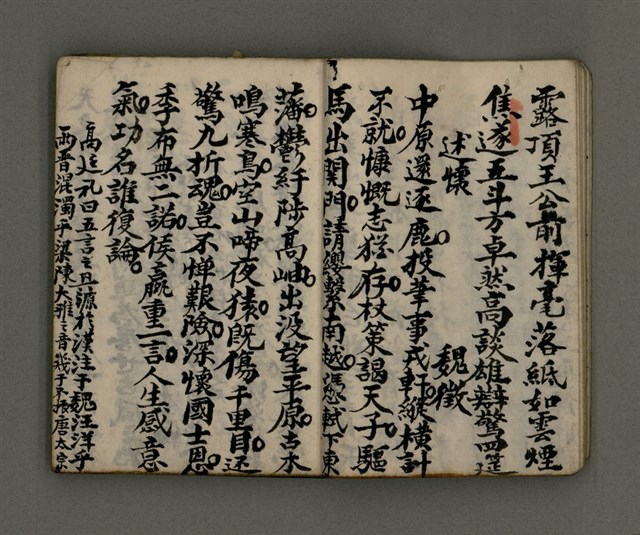 露頂王公前揮毫落紙如雲煙
焦遂五斗方卓然高談雄辯驚四筵
述懷　魏徵
中原還逐鹿投筆事戎軒縱橫計
不就慷慨志猶存杖策謁天子驅
馬出関門請纓繫南越憑軾下東
藩欝紆陟高岫出没望平原古木
鳴寒鳥空山啼夜猿既傷千里目还
驚九折魂豈不憚艱險深懷國士恩
季布無二諾侯嬴重一言人生感意
氣功名誰復論
高廷礼曰五言之且源於漢注于魏汪洋乎
兩晋混濁乎梁陳大雅之音幾于不振唐太宗